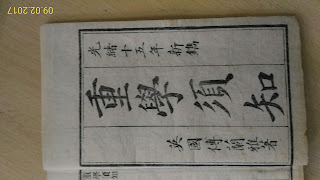 09.02.2017
光緒十五年新鐫
重學須知
英國傅蘭雅著